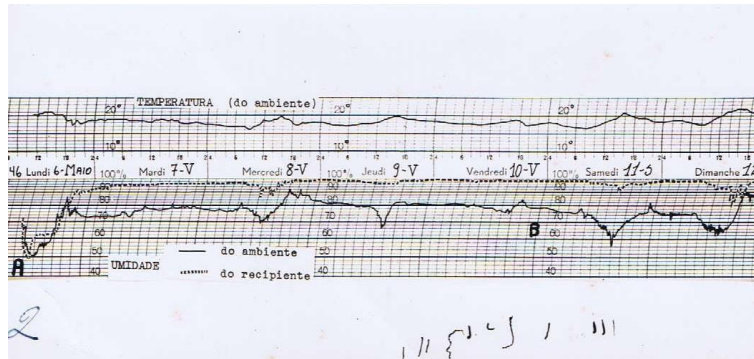 TEMPERATURA (do ambiente)
20° 20° 20°
10° 10° 10°
46 Lundi 6-MAIO Mardi 7-V Mercredi 8-V Jeudi 9-V Vendredi 10-V Samedi 11-5 Dimanche 12
100% 100% 100%
90 90 90
80 80 80
70 70 70
60 60 B 60
50 50 50
A UMIDADE
do ambiente
do recipiente
40 40 40
2